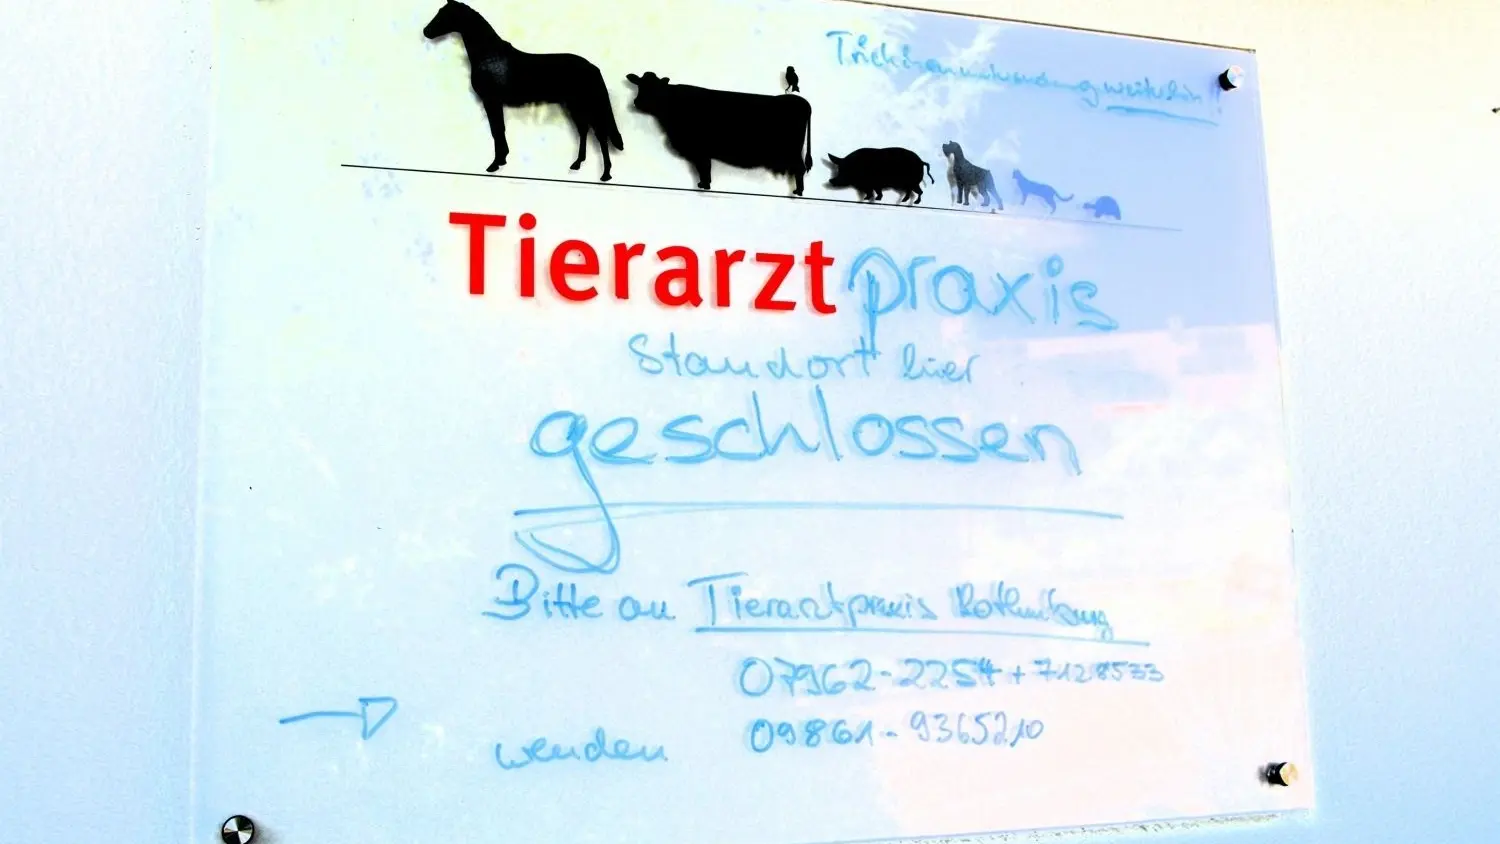 weiterhin
Tierarztpraxis
Standort hier
geschlossen
Bitte an Tierarztpraxis Rothenburg
07962-2254 + 7128533
wenden 09861-9365210